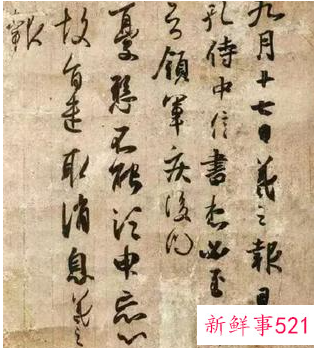 九月十七日羲之報且
孔侍中信書想必至
不知領軍疾後問
憂懸不能須臾忘心
故旨遣取消息羲之
報
新鲜事521